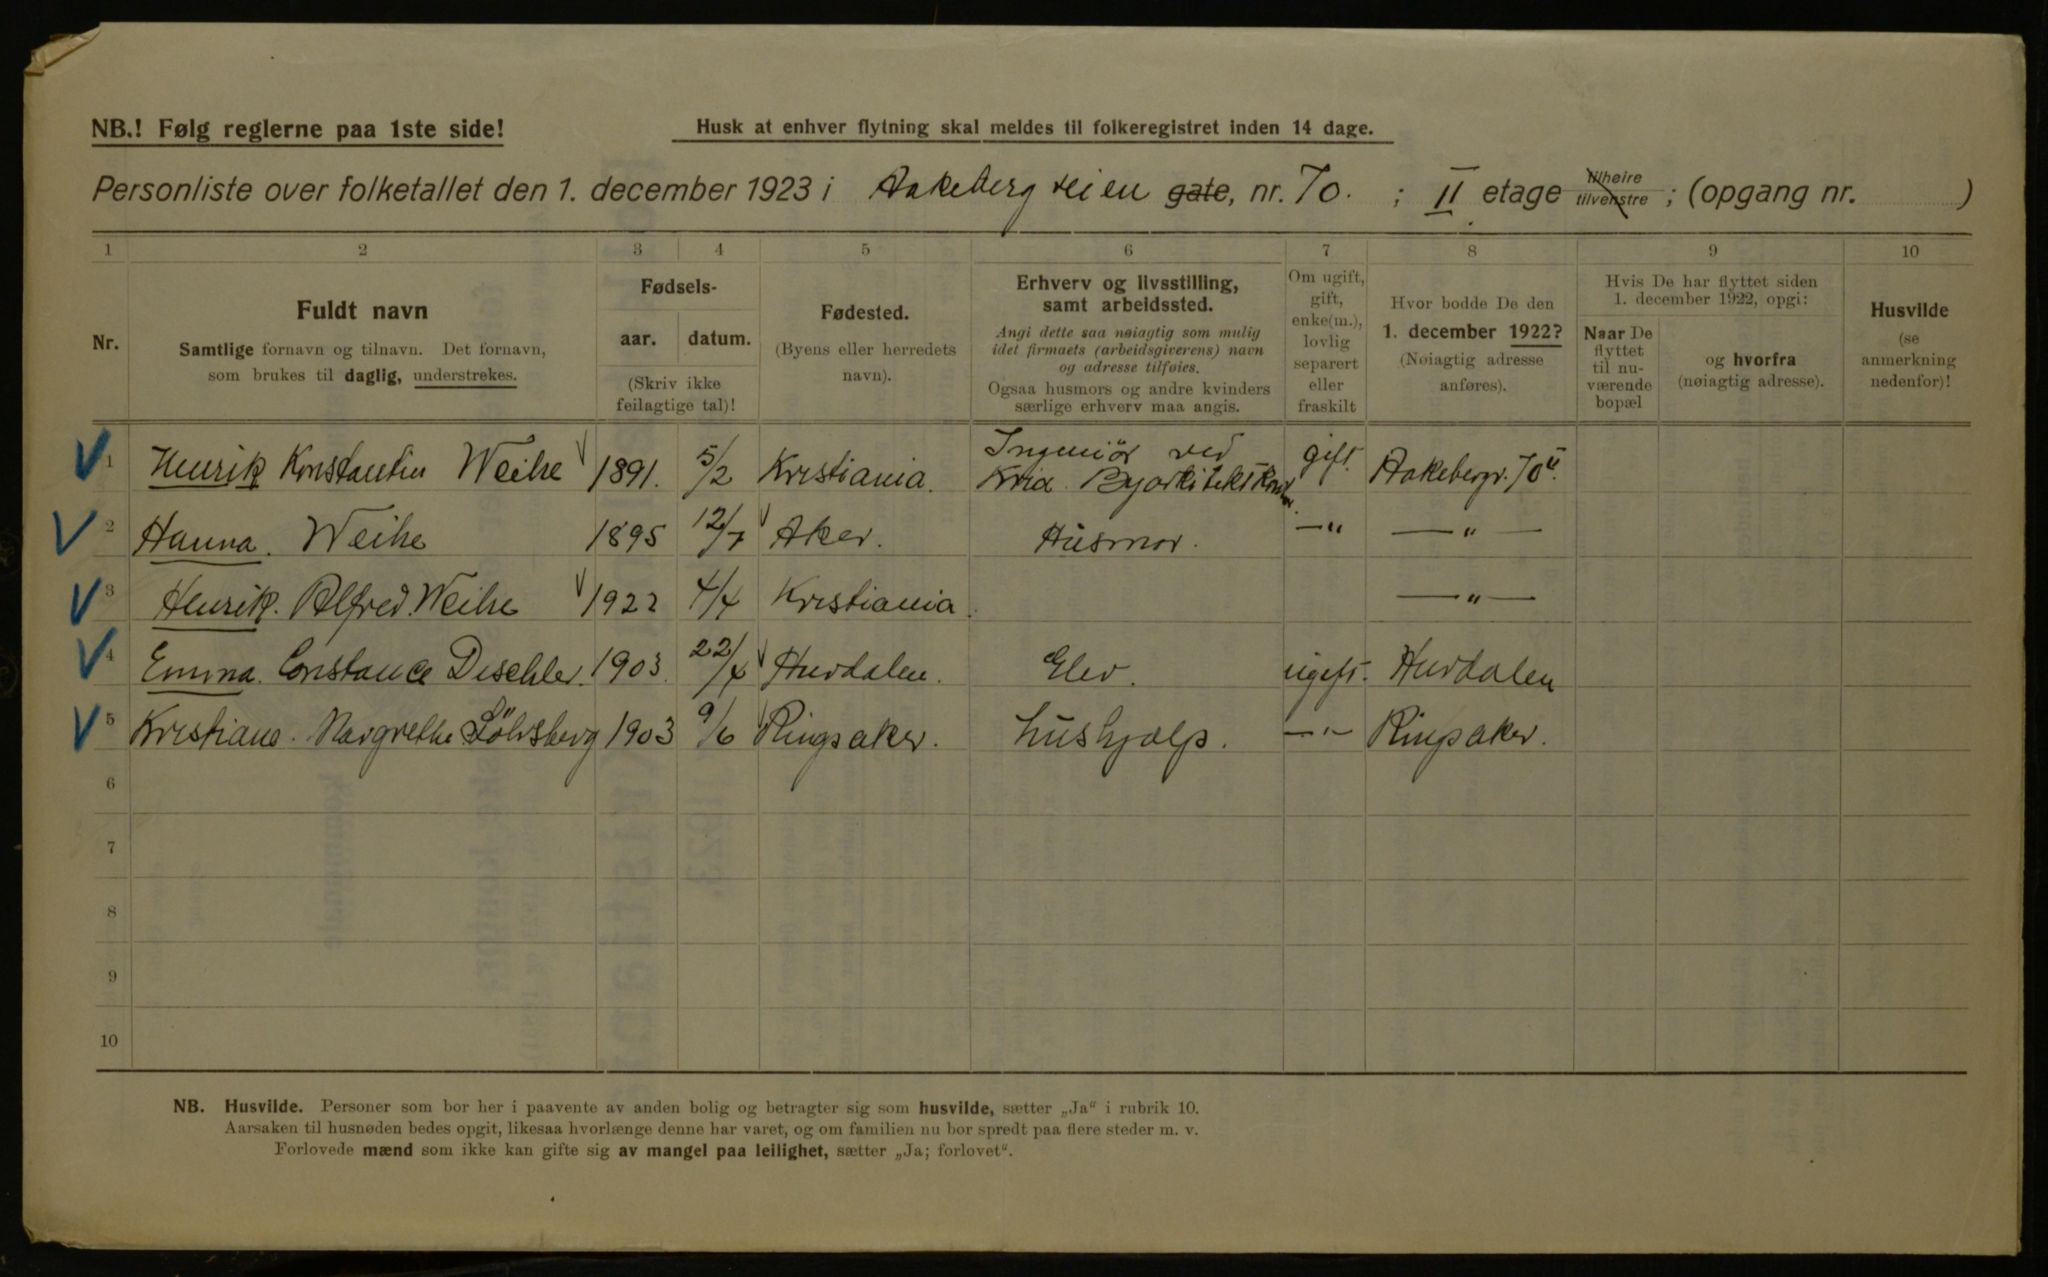 NB.! Følg reglerne paa 1ste side!
Husk at enhver flytning skal meldes til folkeregistret inden 14 dage.
Personliste over folketallet den 1. december 1923 i Aakeberg veien gate, nr. 70. ; II etage tilheire tilvenstre ; (opgang nr. )
1 2 3 4 5 6 7 8 9 10
Nr.
Fuldt navn
Samtlige fornavn og tilnavn. Det fornavn,
som brukes til daglig, understrekes.
Fødsels-
aar. datum.
(Skriv ikke
feilagtige tal)!
Fødested.
(Byens eller herredets
navn).
Erhverv og livsstilling,
samt arbeidssted.
Angi dette saa nøiagtig som mulig
idet firmaets (arbeidsgiverens) navn
og adresse tilføies.
Ogsaa husmors og andre kvinders
særlige erhverv maa angis.
Om ugift,
gift,
enke(m.),
lovlig
separert
eller
fraskilt
Hvor bodde De den
1. december 1922?
(Nøiagtig adresse
anføres).
Hvis De har flyttet siden
1. december 1922, opgi:
Naar De
flyttet
til nu-
værende
bopæl
og hvorfra
(nøiagtig adresse).
Husvilde
(se
anmerkning
nedenfor)!
1 Henrik Konstantin Weihe 1891. 5/2 Kristiania. Ingeniör ved Kria Byarkitektkontor. gift. Aakebergv. 70 II.
2 Hanna. Weihe 1895 12/7 Aker. Husmor. —"— —"—
3 Henrik. Alfred. Weihe 1922 4/4 Kristiania. —"—
4 Emma. Constance Deschler. 1903. 22/4 Hurdalen. Elev. ugift. Hurdalen
5 Kristiane. Margrethe Sölvsberg 1903 9/6 Ringsaker. hushjælp. —"— Ringsaker.
6
7
8
9
10
NB. Husvilde. Personer som bor her i paavente av anden bolig og betragter sig som husvilde, sætter „Ja“ i rubrik 10.
Aarsaken til husnøden bedes opgit, likesaa hvorlænge denne har varet, og om familien nu bor spredt paa flere steder m. v.
Forlovede mænd som ikke kan gifte sig av mangel paa leilighet, sætter „Ja; forlovet“.